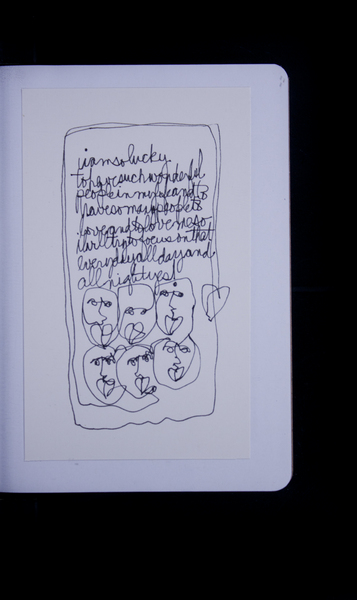 iamsolucky
tohavesuchwonderful
peopleinmylifeandto
havesomanypeopleto
loveandtolovemeso
iwillintofocusonthat
everydayalldayand
allnightyes!